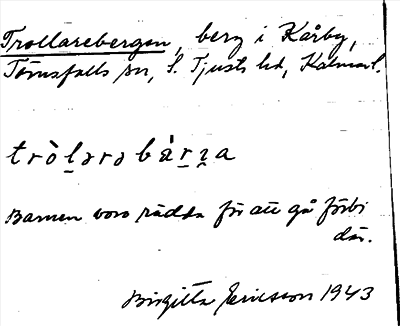 Trollarebergen, berg i Kårby,
Törnsfalls sn, S. Tjusts hd, Kalmar l.
trò̀l̠ərəbàr̠n̠a
Barnen voro rädda för att gå förbi
där.
Birgitta Ericsson 1943